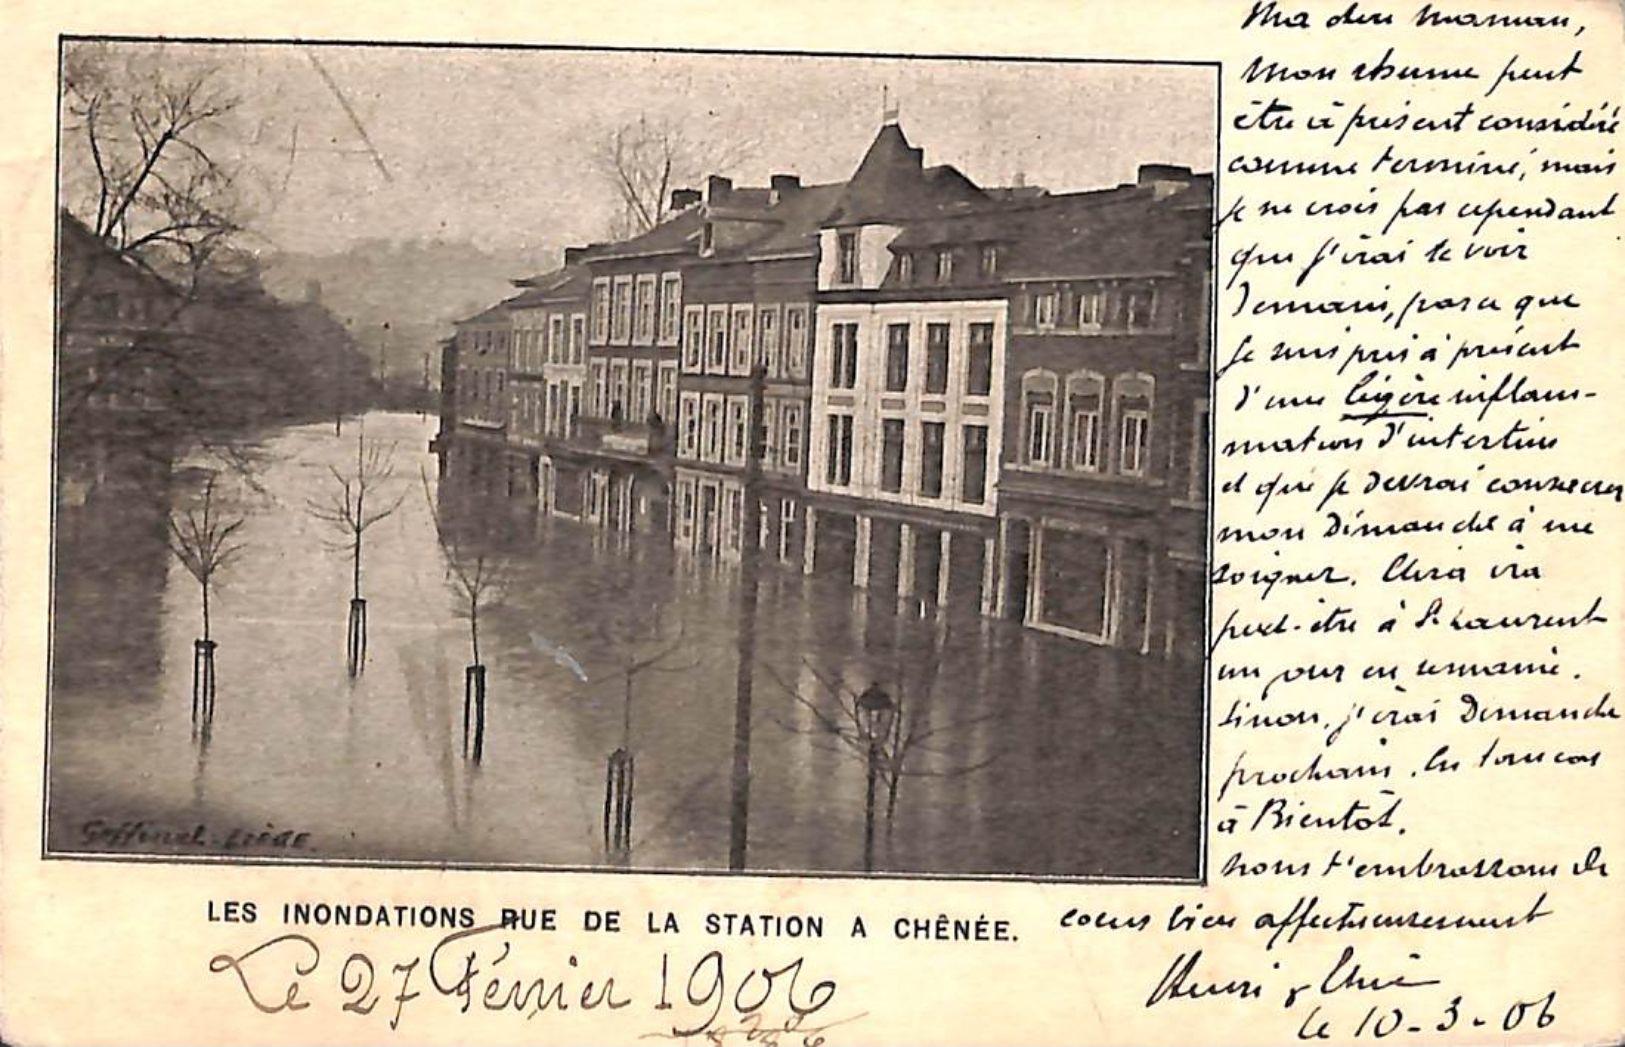 Ma chère maman,
Mon rhume peut
être à présent considéré
comme terminé, mais
je ne crois pas cependant
que j'irai te voir
Demain, parce que
je suis pris à présent
d'une légère inflam-
mation d'intestins
et que je devrai consacrer
mon Dimanche à me
soigner. ira
peut-être à St Laurent
un jour en semaine.
Sinon, j'irai Dimanche
prochain. En tous cas
à Bientôt.
nous t'embrassons de
coeur bien affectueusement
Henri &
le 10-3-06
Goffinet-Liège.
LES INONDATIONS RUE DE LA STATION A CHÊNÉE.
Le 27 Février 1906